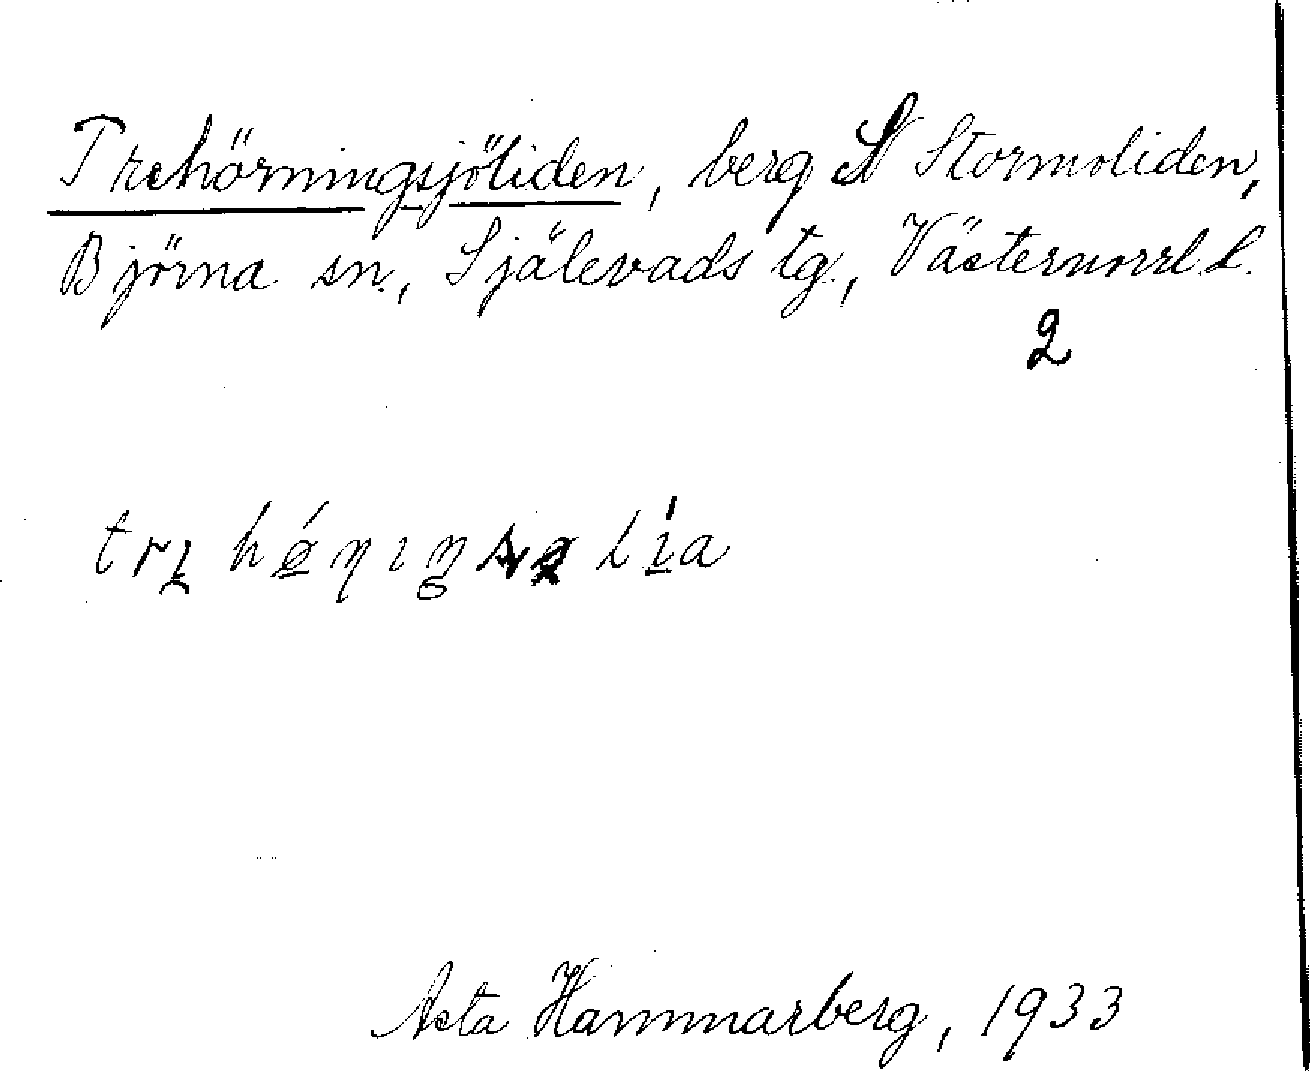 Trehörningsjöliden, berg N Stormoliden,
Björna sn., Själevads tg., Västernorrl. L.
2
Asta Hammarberg, 1933